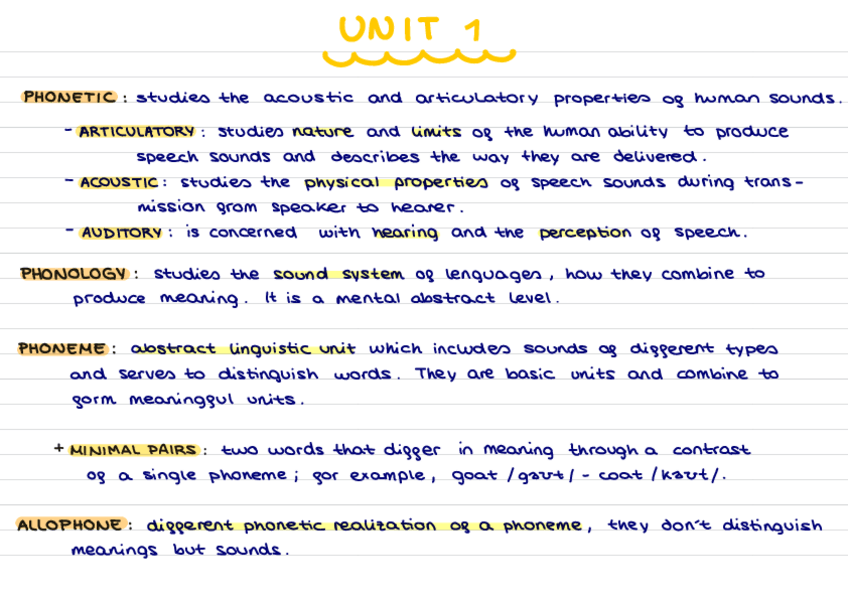 UNIT 1
PHONETIC : studies the acoustic and articulatory properties of human sounds.
- ARTICULATORY : studies nature and limits of the human ability to produce
speech sounds and describes the way they are delivered.
- ACOUSTIC : studies the physical properties of speech sounds during trans-
mission from speaker to hearer.
- AUDITORY : is concerned with hearing and the perception of speech.
PHONOLOGY : studies the sound system of lenguages, how they combine to
produce meaning. It is a mental abstract level.
PHONEME : abstract linguistic unit which includes sounds of different types
and serves to distinguish words. They are basic units and combine to
form meaningful units.
+ MINIMAL PAIRS : two words that differ in meaning through a contrast
of a single phoneme; for example, goat /gəʊt/ - coat /kəʊt/.
ALLOPHONE : different phonetic realization of a phoneme, they don't distinguish
meanings but sounds.